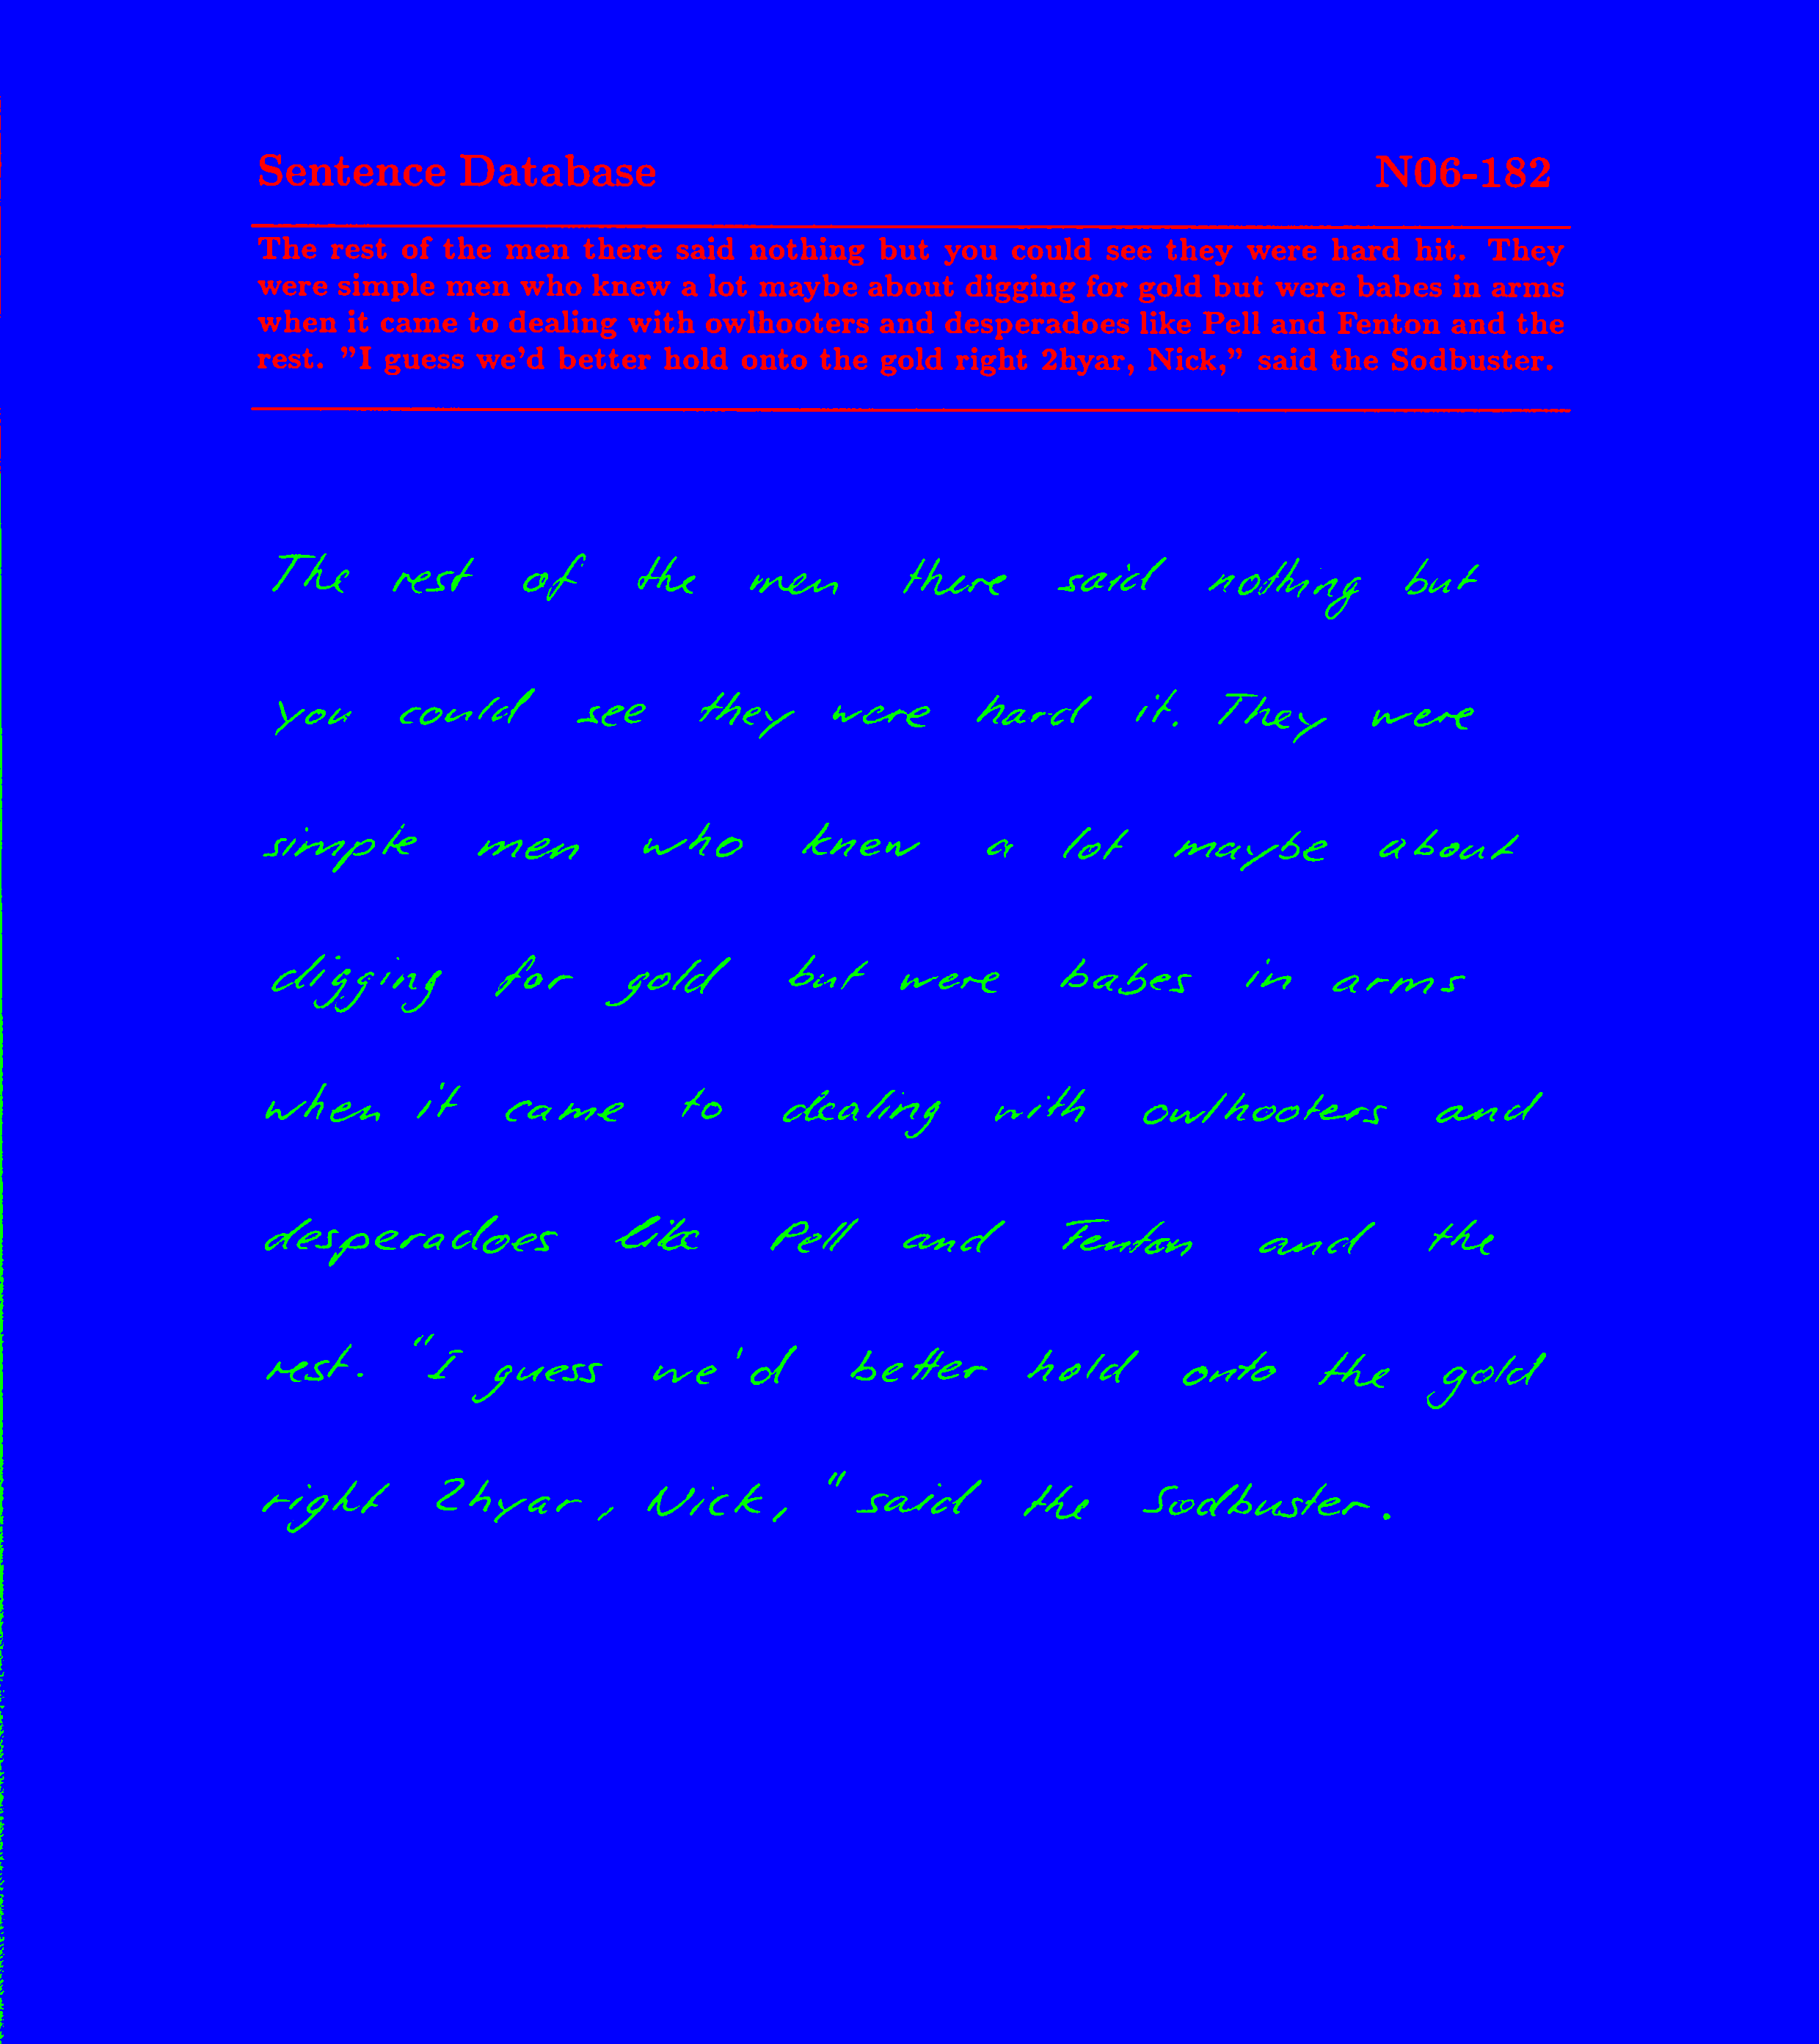 Sentence Database N06-182
The rest of the men there said nothing but you could see they were hard hit. They
were simple men who knew a lot maybe about digging for gold but were babes in arms
when it came to dealing with owlhooters and desperadoes like Pell and Fenton and the
rest. "I guess we'd better hold onto the gold right 2hyar, Nick," said the Sodbuster.
The rest of the men there said nothing but
you could see they were hard it. They were
simple men who knew a lot maybe about
digging for gold but were babes in arms
when it came to dealing with owlhooters and
desperadoes like Pell and Fenton and the
rest. "I guess we'd better hold onto the gold
right 2hyar, Nick," said the Sodbuster.